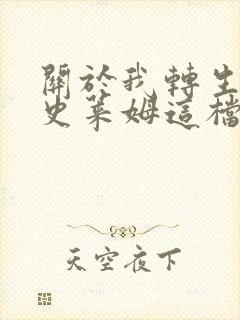 關於我轉生
史萊姆這檔
天空夜下